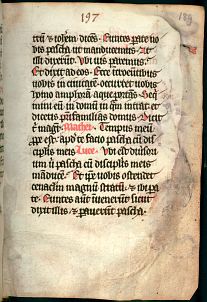 197
189
trū & ioħem dicēs Euntes parate no
bis pascha ut manducemus At
illi dixerūt Ubi uis paremus
Et dixit ad eos Ecce introeuntibus
uobis in ciuitatē occurret uobis
homo amphorā aque portās Seq̄
mini eū in domū in quā intrat et
dicetis patrifamilias domus Dicit
magr̄ Mathei Tempus meū
ꝓpe est apd te facio pascha cū dis
cipulis meis Luce Ubi est diuersori
um ū pascha cū discipulis meis
māducē Et ip̄e uobis ostendet
cenaclm magnū stratū & ibi pa
te Euntes autē inuenerūt sicut
dixit illis & parauerūt pascha